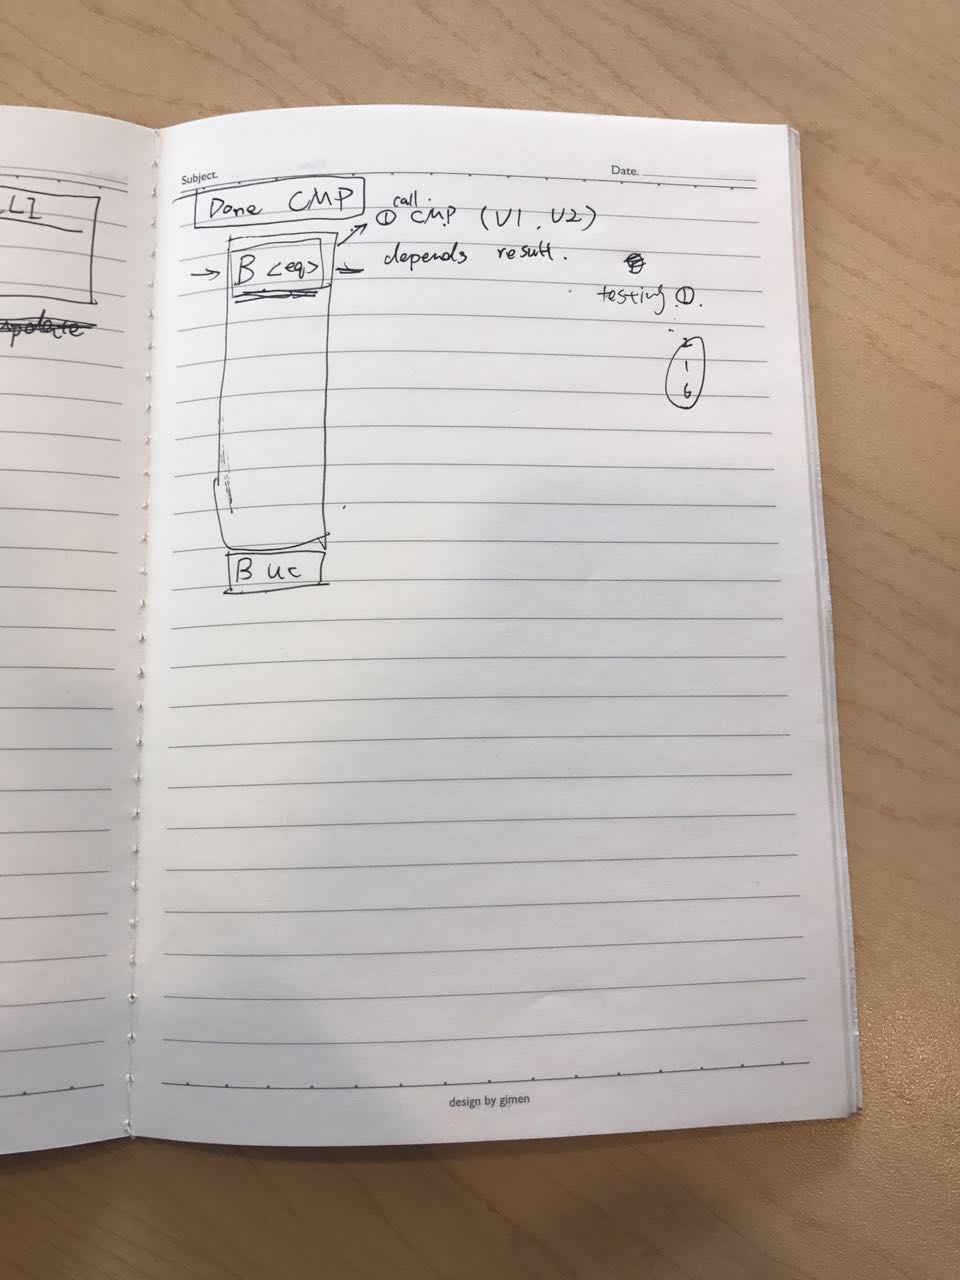 LLI
Subject.
Date.
Done CMP
call.
① CMP (V1, V2)
B <eq>
depends result.
testing ①.
2
1
6
B uc
design by gimen